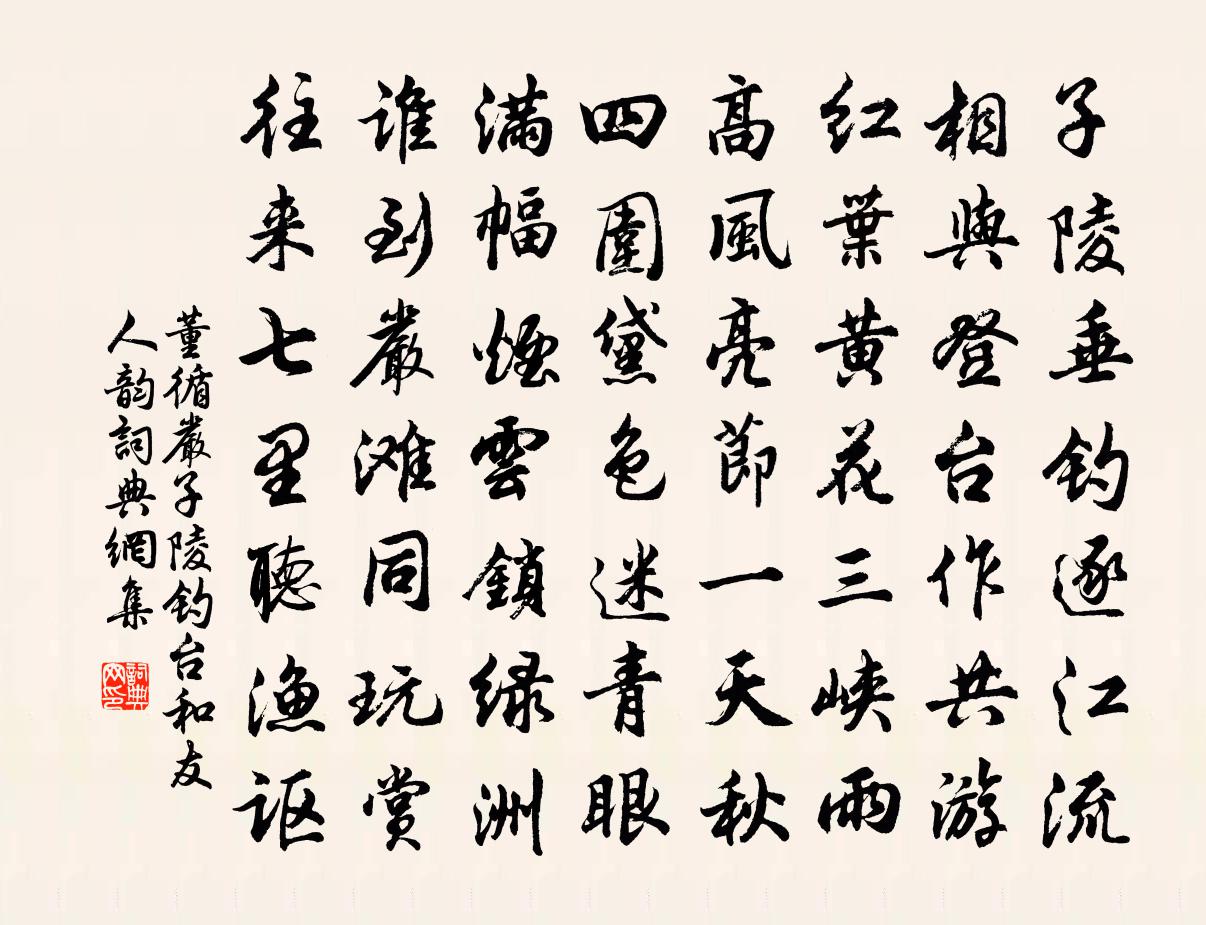 子陵垂钓逐江流
相與登台作共游
红葉黄花三峡雨
高風亮節一天秋
四圍黛色迷青眼
满幅煙雲鎖绿洲
谁到嚴滩同玩赏
往来七里聽渔讴
董循嚴子陵钓台和友
人韵詞典網集
詞典
网印